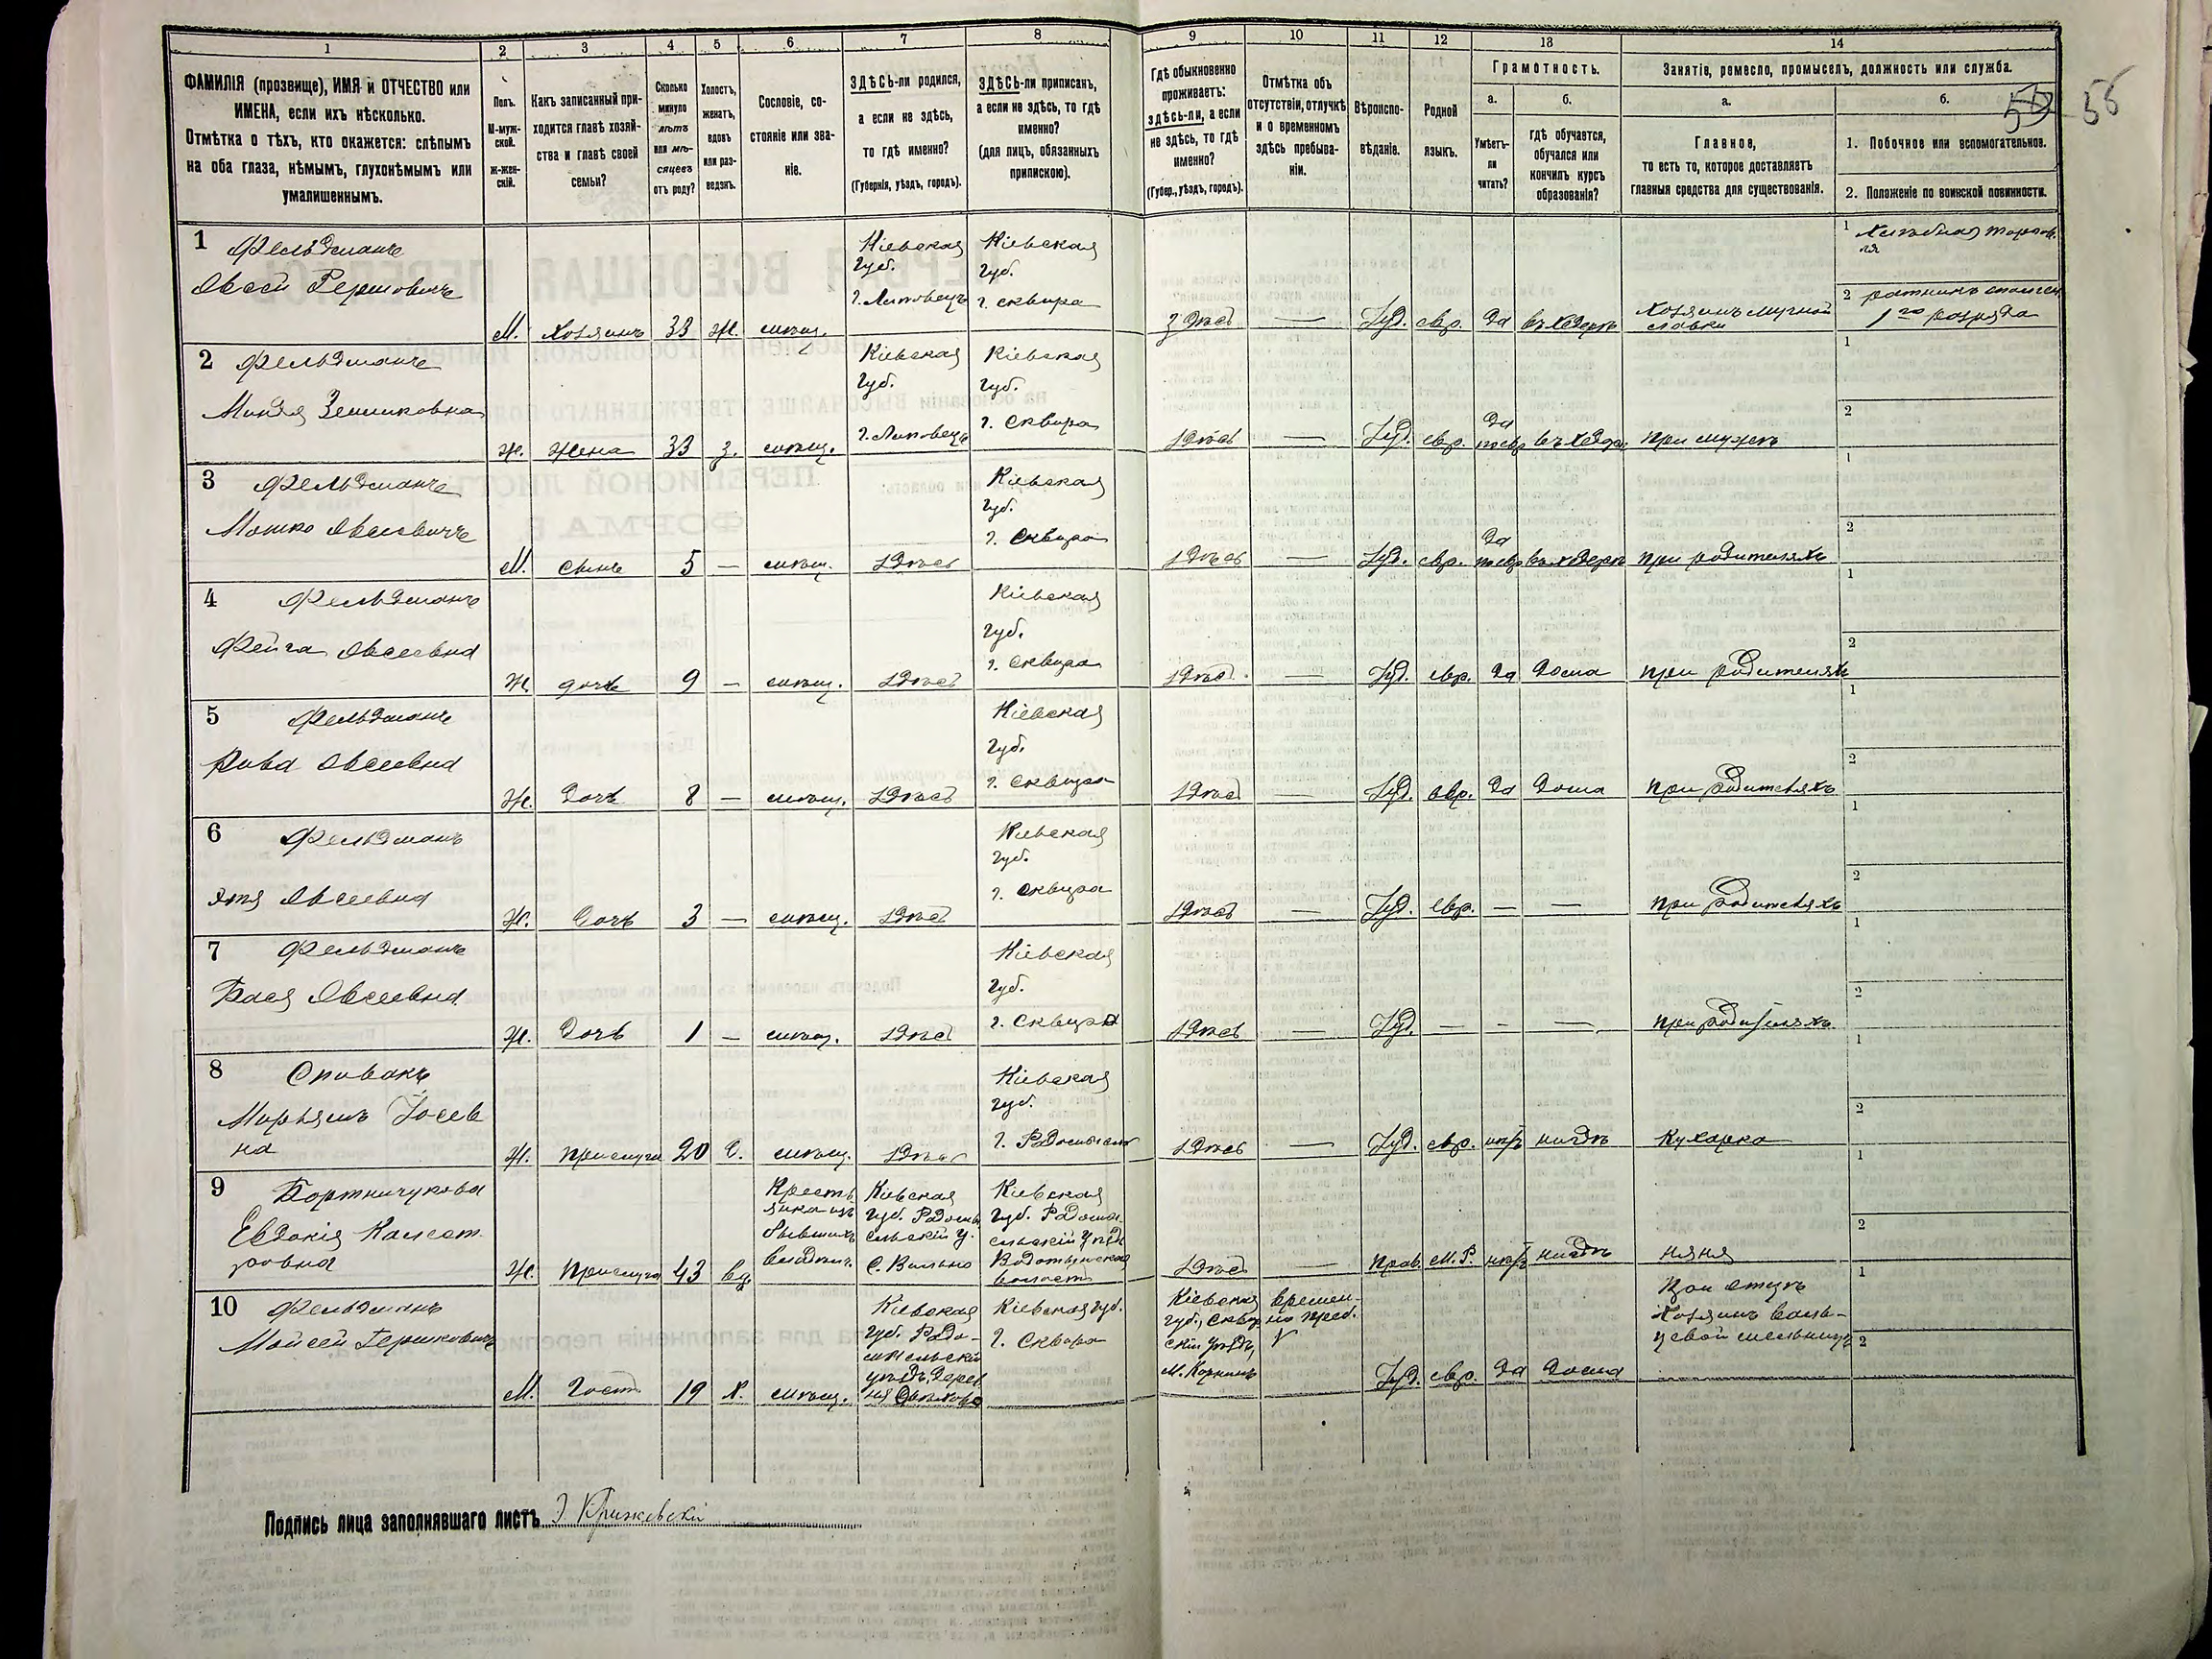 1 2 3 4 5 6 7 8 9 10 11 12 13 14
ФАМИЛІЯ (прозвище), ИМЯ и ОТЧЕСТВО или
ИМЕНА, если ихъ нѣсколько.
Отмѣтка о тѣхъ, кто окажется: слѣпымъ
на оба глаза, нѣмымъ, глухонѣмымъ или
умалишеннымъ.
Полъ.
М-муж-
ской.
Ж-жен-
скій.
Какъ записанный при-
ходится главѣ хозяй-
ства и главѣ своей
семьи?
Сколько
минуло
лѣтъ
или мѣ-
сяцевъ
отъ роду?
Холостъ,
женатъ,
вдовъ
или раз-
веденъ.
Сословіе, со-
стояніе или зва-
ніе.
ЗДѢСЬ-ли родился,
а если не здѣсь,
то гдѣ именно?
(Губернія, уѣздъ, городъ).
ЗДѢСЬ-ли приписанъ,
а если не здѣсь, то гдѣ
именно?
(для лицъ, обязанныхъ
припискою).
Гдѣ обыкновенно
проживаетъ:
здѣсь-ли, а если
не здѣсь, то гдѣ
именно?
(Губер., уѣздъ, городъ).
Отмѣтка объ
отсутствіи, отлучкѣ
и о временномъ
здѣсь пребыва-
ніи.
Вѣроиспо-
вѣданіе.
Родной
языкъ.
Грамотность.
а.
Умѣетъ-
ли
читать?
б.
гдѣ обучается,
обучался или
кончилъ курсъ
образованія?
Занятіе, ремесло, промыселъ, должность или служба.
а.
Главное,
то есть то, которое доставляетъ
главныя средства для существованія.
б.
1. Побочное или вспомогательное.
2. Положеніе по воинской повинности.
56
1 Фельдманъ
Овсей Гершковичъ
М. Хозяинъ 33 Ж. мѣщ.
Кіевская
Губ.
г. Липовецъ
Кіевская
Губ.
г. Сквира
Здѣсь — Іуд. евр. Да въ хедерѣ
Хозяинъ мучной
лавки
1
2 ратникъ ополчен.
1го разряда
2 Фельдманъ
Ж. Жена 33 З. мѣщ.
Кіевская
Губ.
г. Липовецъ
Кіевская
Губ.
г. Сквира
здѣсь — Іуд. евр. Да
по евр. при мужѣ
1
2
3 Фельдманъ
Мошко Овсеевичъ
М. сынъ 5 — мѣщ. здѣсь
Кіевская
Губ.
г. Сквира
здѣсь — Іуд. евр. Да
по евр. въ хедерѣ при родителяхъ
1
2
4 Фельдманъ
Фейга Овсеевна
Ж. дочь 9 — мѣщ. здѣсь
Кіевская
Губ.
г. Сквира
здѣсь — Іуд. евр. Да Дома при родителяхъ
1
2
5 Фельдманъ
Рива Овсеевна
Ж. Дочь 8 — мѣщ. здѣсь
Кіевская
Губ.
г. Сквира
здѣсь — Іуд. евр. Да Дома при родителяхъ
1
2
6 Фельдманъ
Этя Овсеевна
Ж. Дочь 3 — мѣщ. здѣсь
Кіевская
Губ.
г. Сквира
здѣсь — Іуд. евр. — — при родителяхъ
1
2
7 Фельдманъ
Бася Овсеевна
Ж. Дочь 1 — мѣщ. здѣсь
Кіевская
Губ.
г. Сквира
здѣсь — Іуд. — — — при родителяхъ
1
2
8 Спивакъ
Мирьямъ Іосев
на
Ж. прислуга 20 Д. мѣщ. здѣсь
Кіевская
Губ.
г. Радомысль
здѣсь — Іуд. евр. нѣтъ нигдѣ Кухарка
1
2
9 Бортничукова
Евдокія
Ж. Прислуга 43 вд.
Кресть
янка изъ
бывшихъ
Кіевская
Губ. Радомы
сльскій у.
С. Вильно
Кіевская
Губ. Радомы-
сльскій уѣздъ
Водотыйская
волость
здѣсь — Прав. М. Р. нѣтъ нигдѣ няня
1
2
10 Фельдманъ
Мойсей Гершковичъ
М. Гость 19 Х. мѣщ.
Кіевская
Губ. Радо-
мысльскій
уѣздъ, Дерев
ня
Кіевская Губ.
г. Сквира
Кіевская
Губ., Сквир
скій уѣздъ,
м. Корнинъ
времен-
но преб.
Іуд. евр. Да Дома
При отцѣ
1
2
Подпись лица заполнявшаго листъ Э. Крижевскій